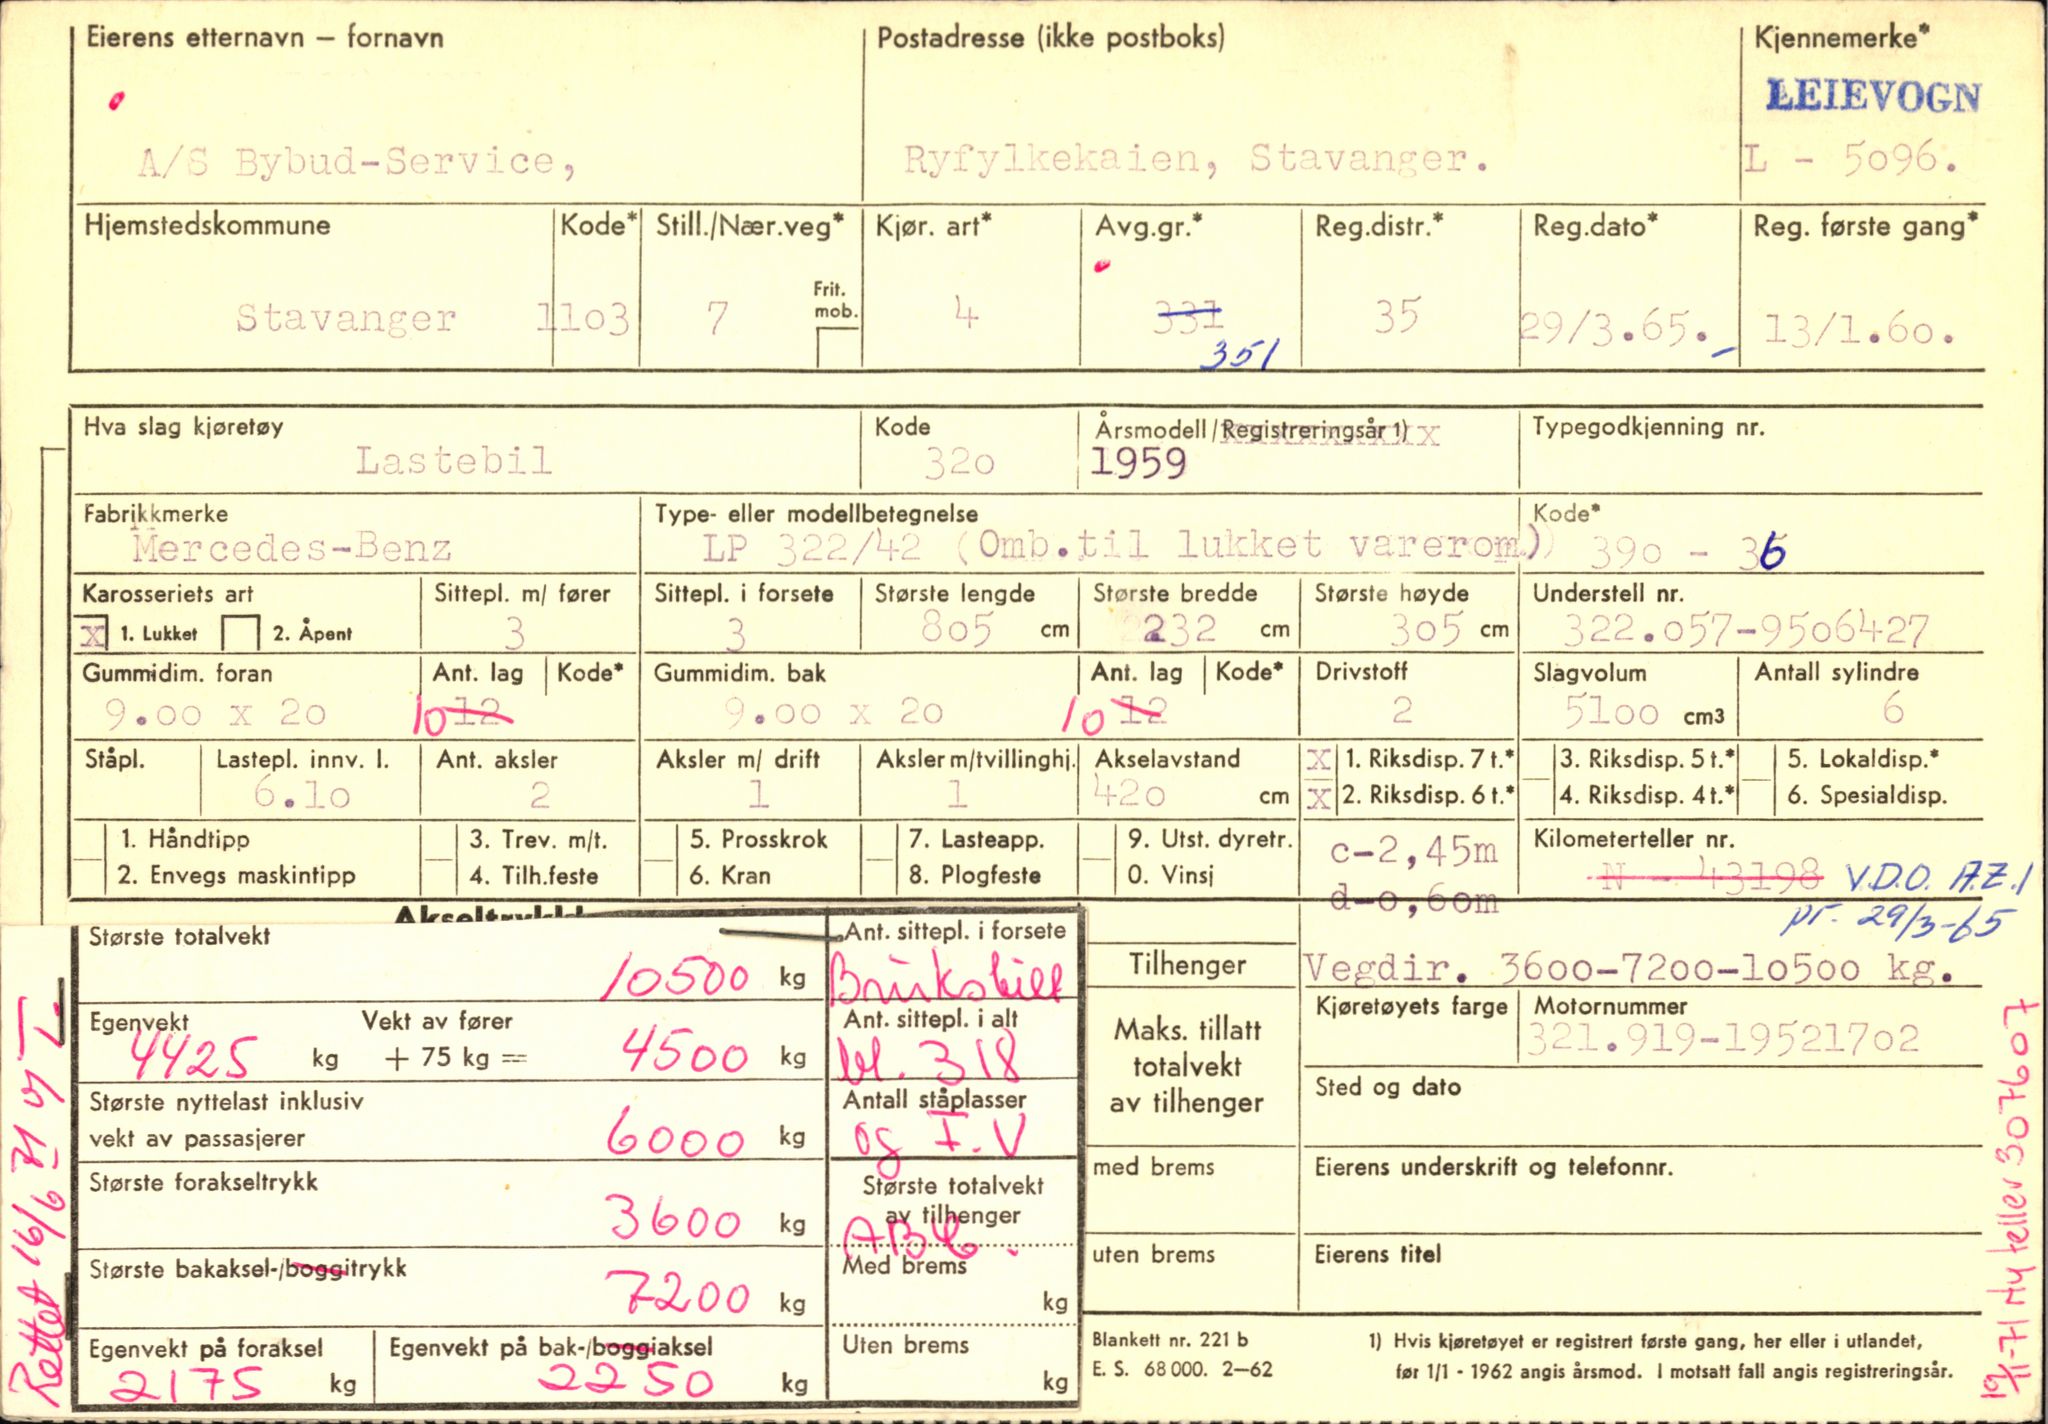 Eierens etternavn – fornavn Postadresse (ikke postboks) Kjennemerke*
LEIEVOGN
A/S Bybud-Service, Ryfylkekaien, Stavanger. L - 5096.
Hjemstedskommune Kode* Still./Nær.veg* Kjør. art* Avg.gr.* Reg.distr.* Reg.dato* Reg. første gang*
Frit.
mob.
Stavanger 1103 7 4 331 35 29/3.65. 13/1.60.
351
Hva slag kjøretøy Kode Årsmodell/Registreringsår 1) Typegodkjenning nr.
Lastebil 320 1959
Fabrikkmerke Type- eller modellbetegnelse Kode*
Mercedes-Benz LP 322/42 (Omb.til lukket varerom) 390 - 36
Karosseriets art Sittepl. m/ fører Sittepl. i forsete Største lengde Største bredde Største høyde Understell nr.
x 1. Lukket 2. Åpent 3 3 805 cm 232 cm 305 cm 322.057-9506427
Gummidim. foran Ant. lag Kode* Gummidim. bak Ant. lag Kode* Drivstoff Slagvolum Antall sylindre
9.00 x 20 10 12 9.00 x 20 10 12 2 5100 cm3 6
Ståpl. Lastepl. innv. l. Ant. aksler Aksler m/ drift Aksler m/tvillinghj. Akselavstand x 1. Riksdisp. 7 t.* 3. Riksdisp. 5 t.* 5. Lokaldisp.*
6.10 2 1 1 420 cm x 2. Riksdisp. 6 t.* 4. Riksdisp. 4 t.* 6. Spesialdisp.
1. Håndtipp 3. Trev. m/t. 5. Prosskrok 7. Lasteapp. 9. Utst. dyretr. c-2,45m Kilometerteller nr.
2. Envegs maskintipp 4. Tilh.feste 6. Kran 8. Plogfeste 0. Vinsj d-0,60m N - 43198 V.D.O. A.Z.1
pr. 29/3-65
Akseltrykk
Største totalvekt 10500 kg Ant. sittepl. i forsete
Bruksbilt
Tilhenger Vegdir. 3600-7200-10500 kg.
Egenvekt Vekt av fører Ant. sittepl. i alt
4425 kg + 75 kg = 4500 kg bl. 318
Maks. tillatt
totalvekt
av tilhenger
Kjøretøyets farge Motornummer
321.919-19521702
Største nyttelast inklusiv
vekt av passasjerer 6000 kg
Antall ståplasser
og I.V
Sted og dato
Største forakseltrykk 3600 kg
Største totalvekt
av tilhenger
med brems Eierens underskrift og telefonnr.
Største bakaksel-/boggitrykk 7200 kg
Med brems
kg
uten brems Eierens titel
Egenvekt på foraksel Egenvekt på bak-/boggiaksel Uten brems
2175 kg 2250 kg kg
Blankett nr. 221 b
E. S. 68 000. 2–62
1) Hvis kjøretøyet er registrert første gang, her eller i utlandet,
før 1/1 - 1962 angis årsmod. I motsatt fall angis registreringsår.
Rettet 16/6 71
19/11-71 Ny teller 3076607